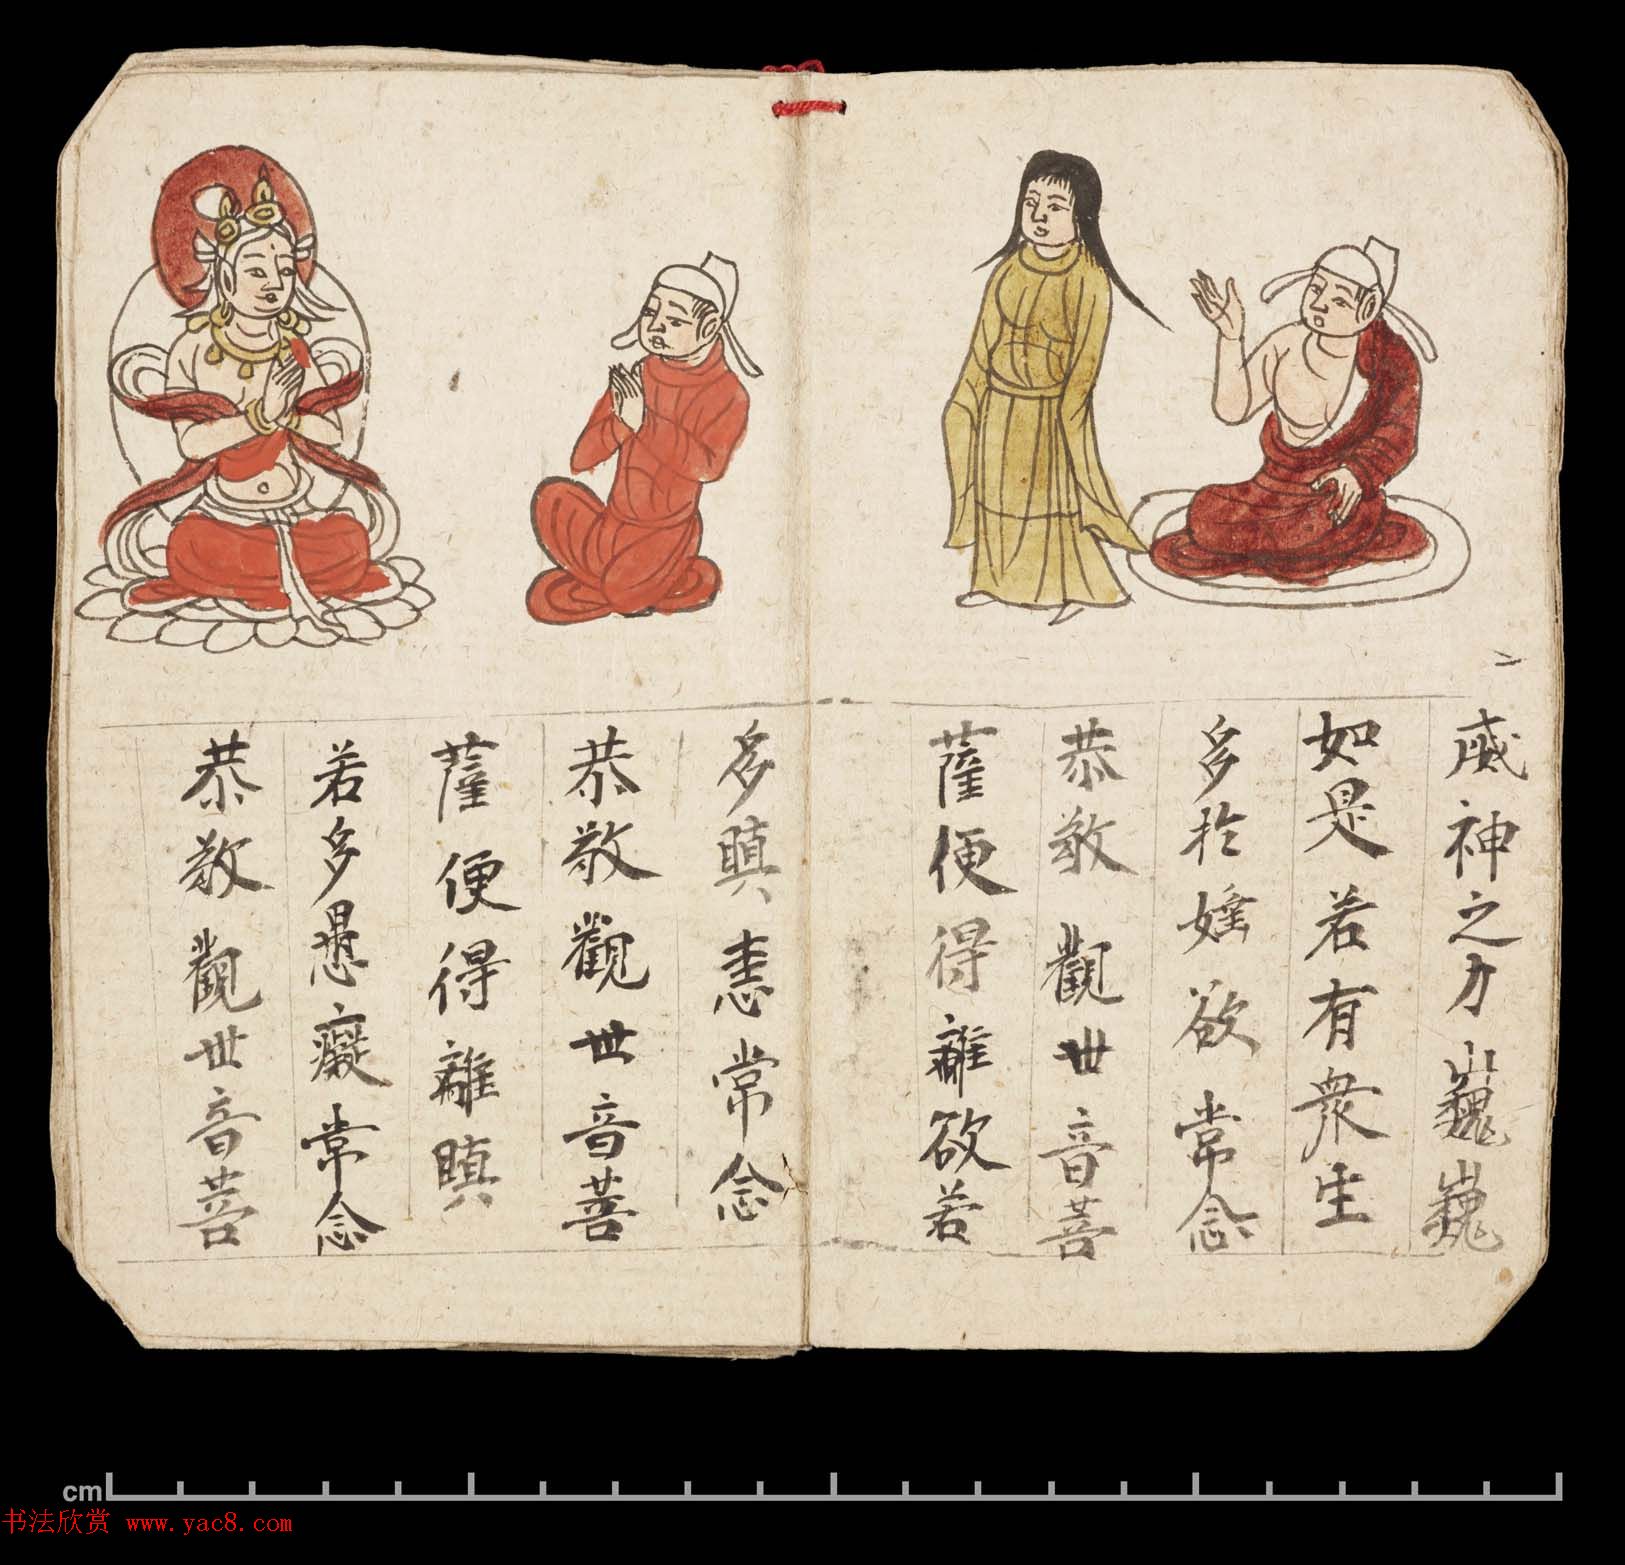 威神之力巍巍
如是若有衆生
多於婬欲常念
恭敬觀世音菩
薩便得離欲若
多瞋恚常念
恭敬觀世音菩
薩便得離瞋
若多愚癡常念
恭敬觀世音菩
cm
书法欣赏 www.yac8.com